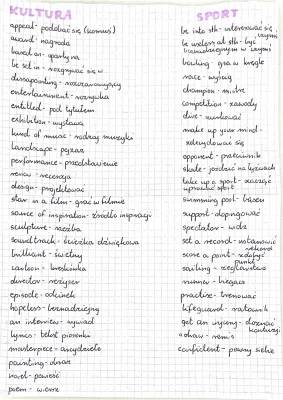 KULTURA
appeal - podobać się (komuś)
award - nagroda
based on - oparty na
be set in - rozgrywać się w
dissapointing - rozczarowujący
entertainment - rozrywka
entitled - pod tytułem
exhibition - wystawa
kind of music - rodzaj muzyki
landscape - pejzaż
performance - przedstawienie
review - recenzja
design - projektować
star in a film - grać w filmie
source of inspiration - źródło inspiracji
sculpture - rzeźba
soundtrack - ścieżka dźwiękowa
brilliant - świetny
cartoon - kreskówka
director - reżyser
episode - odcinek
hopeless - beznadziejny
an interview - wywiad
lyrics - tekst piosenki
masterpiece - arcydzieło
painting - obraz
novel - powieść
poem - wiersz
SPORT
be into sth - interesować się czymś
be useless at sth - być beznadziejnym w czymś
bowling - gra w kręgle
race - wyścig
champion - mistrz
competition - zawody
dive - nurkować
make up your mind -
zdecydować się
opponent - przeciwnik
skate - jeździć na łyżwach
take up a sport - zacząć
uprawiać sport
swimming pool - basen
support - dopingować
spectator - widz
set a record - ustanowić
rekord
score a point - zdobyć
punkt
sailing - żeglarstwo
runner - biegacz
practise - trenować
lifeguard - ratownik
get an injury - doznać
kontuzji
a draw - remis
confident - pewny siebie